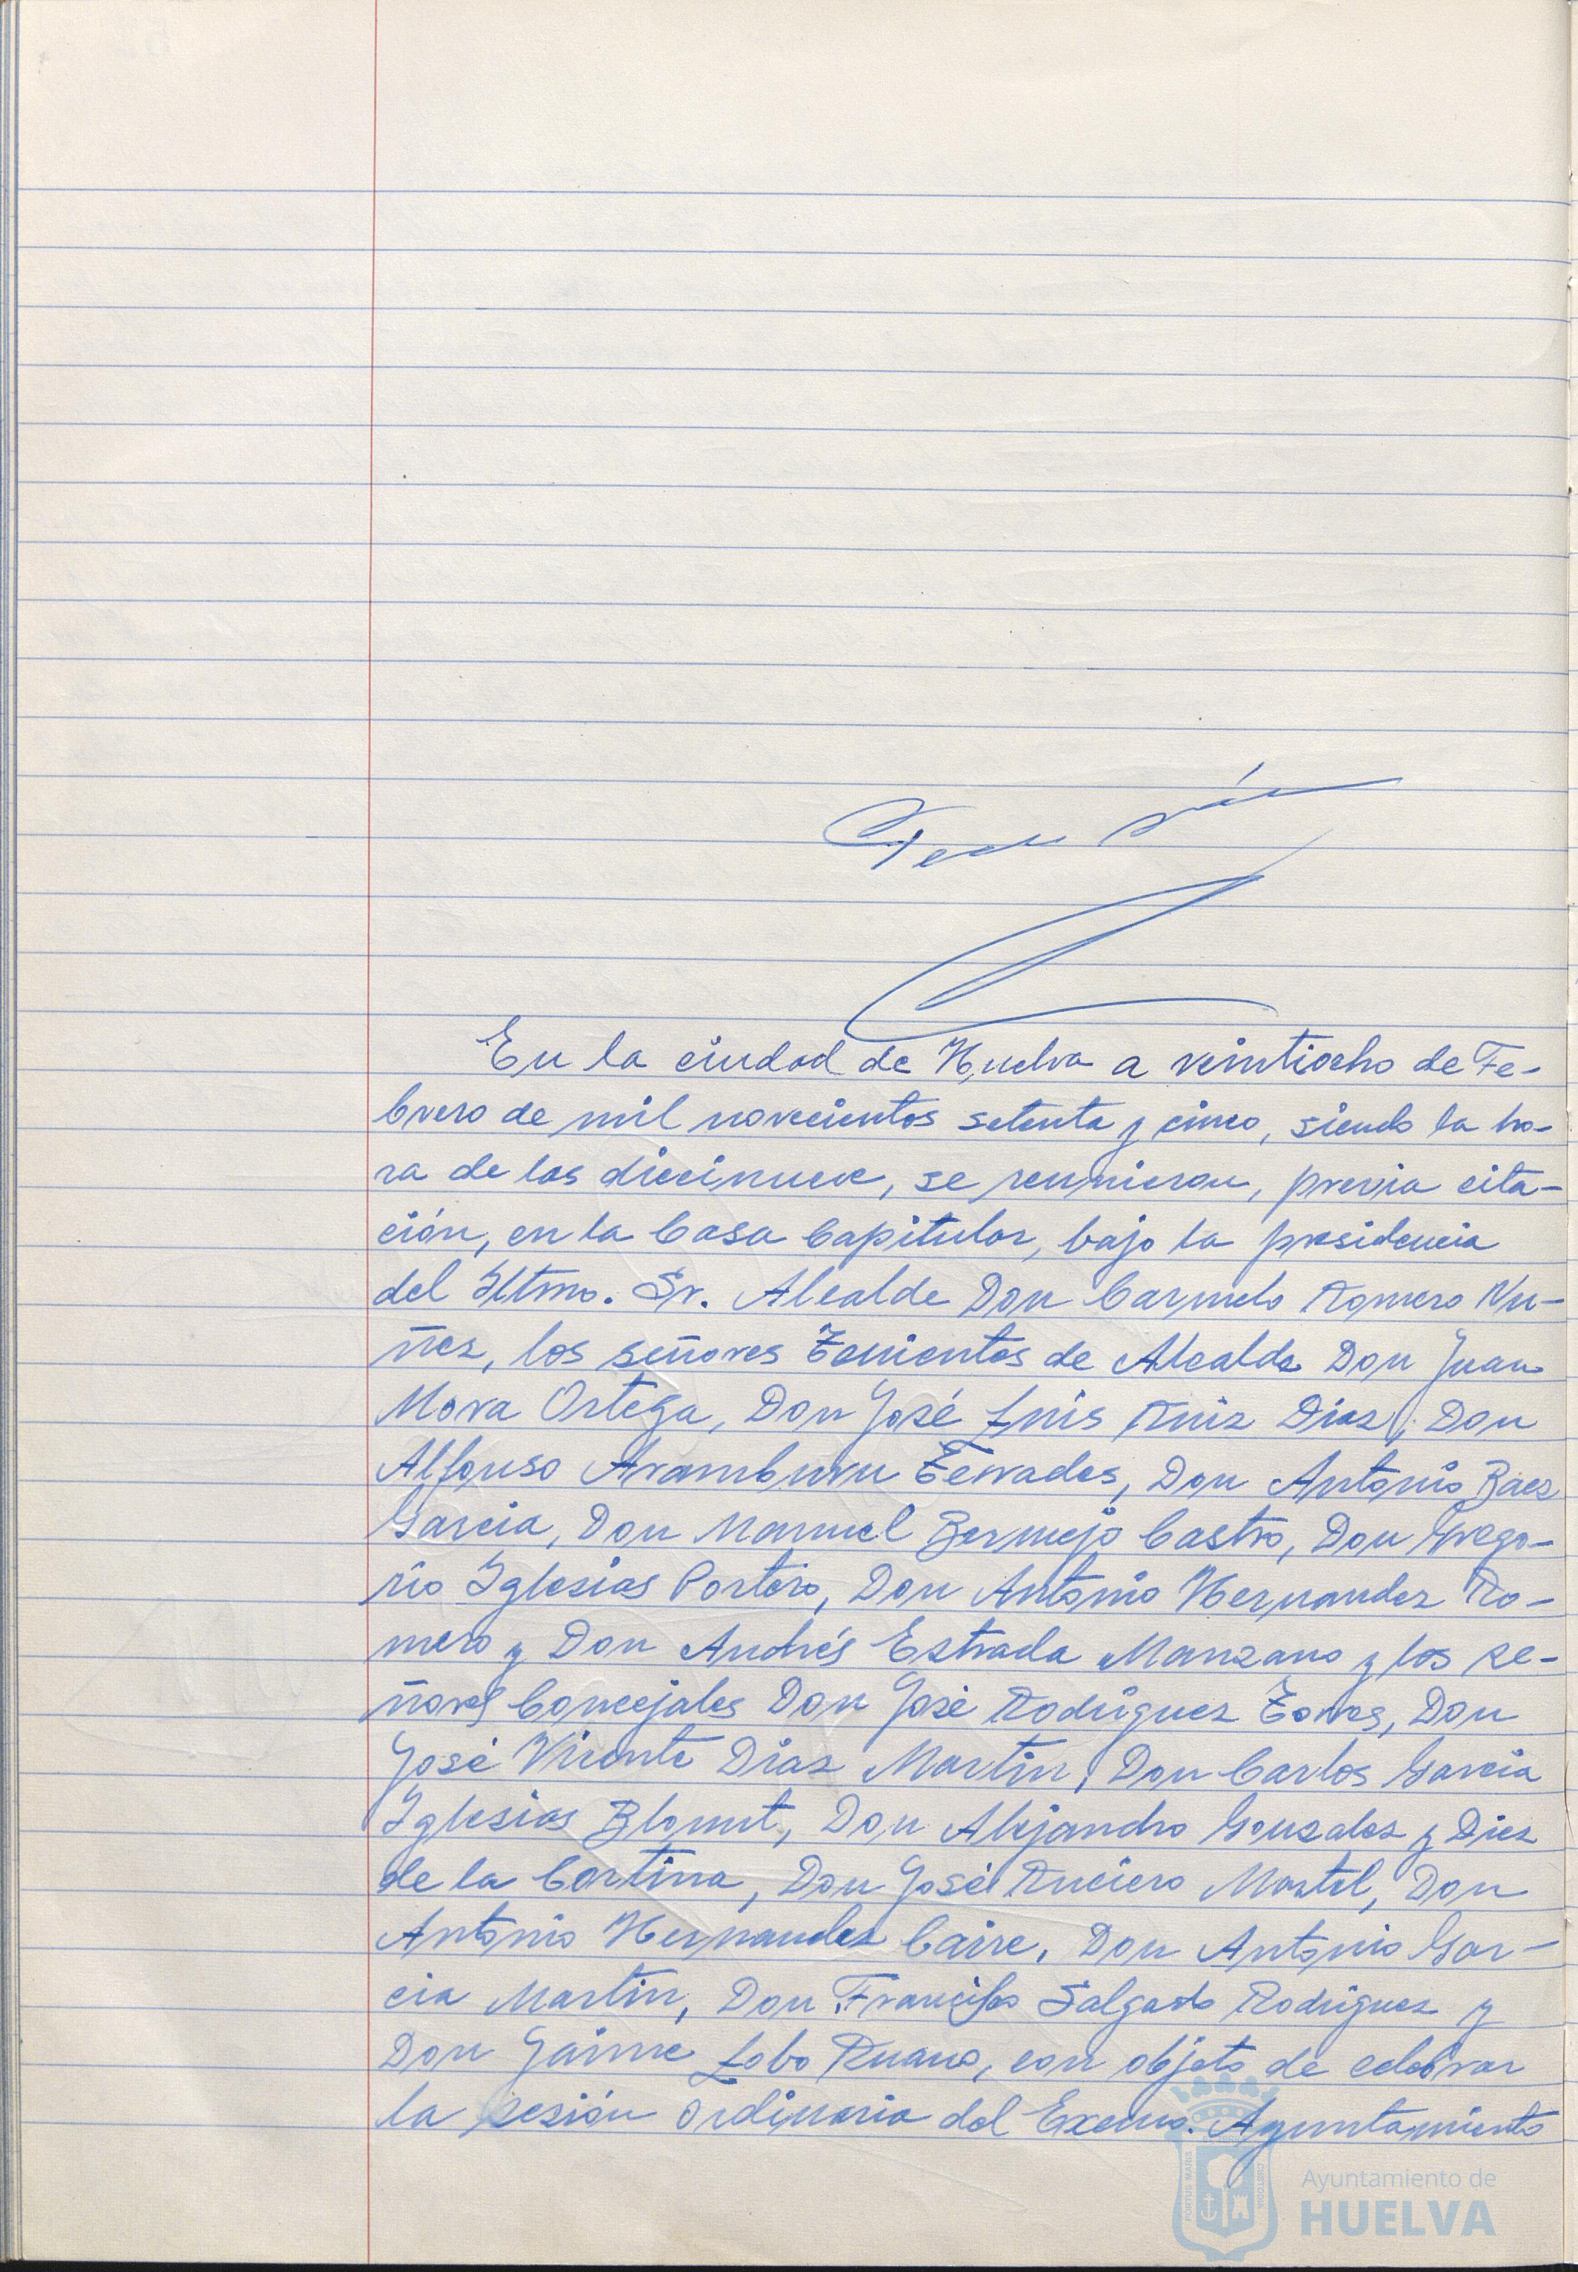 En la ciudad de Huelva a veintiocho de Fe-
brero de mil novecientos setenta y cinco, siendo la ho-
ra de las diecinueve, se reunieron, previa cita-
ción, en la Casa Capitular, bajo la presidencia
del Iltmo. Sr. Alcalde Don Carmelo Romero Nu-
ñez, los señores Tenientes de Alcalde Don Juan
Mora Ortega, Don José Luis Ruiz Diaz, Don
Alfonso Aramburu Terrades, Don Antonio Baez
Garcia, Don Manuel Bermejo Castro, Don Grego-
rio Iglesias Portero, Don Antonio Hernandez Ro-
mero y Don Andrés Estrada Manzano y los se-
ñores Concejales Don José Rodriguez Torres, Don
José Vicente Diaz Martin, Don Carlos Garcia
Iglesias Blount, Don Alejandro Gonzalez y Diez
de la Cortina, Don José Ruciero Martel, Don
Antonio Hernandez Caire, Don Antonio Gar-
cia Martin, Don Francisco Salgado Rodriguez y
Don Jaime Lobo Ruano, con objeto de celebrar
la sesión ordinaria del Excmo. Ayuntamiento
PORTUS MARIS CUSTODIA
Ayuntamiento de
HUELVA